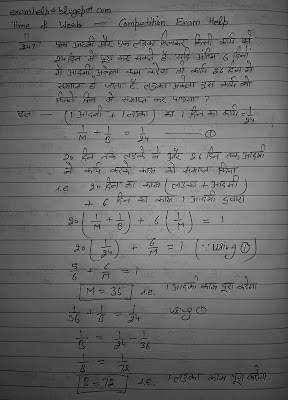 examhelp4.blogspot.com
Time & Work — Competition Exam Help
347 एक आदमी और एक लड़का मिलकर किसी कार्य को
24 दिन में पूरा कर सकते है. यदि अंतिम 6 दिनों
में आदमी अकेला काम करता तो कार्य 26 दिन में
समाप्त हो जाता है. लड़का अकेला इस कार्य को
कितने दिन में समाप्त कर पाएगा ?
हल — (1 आदमी + 1 लड़का) का 1 दिन का कार्य = 1/24
1/M + 1/B = 1/24 — ①
20 दिन तक लड़के ने और 26 दिन तक आदमी
ने काम करके काम को समाप्त किया
i.e 20 दिन का काम (लड़का + आदमी)
+ 6 दिन का काम 1 आदमी द्वारा
20 (1/M + 1/B) + 6 (1/M) = 1
20 (1/24) + 6/M = 1 (∵ using ①)
5/6 + 6/M = 1
M = 36 i.e. 1 आदमी काम पूरा करेगा
1/36 + 1/B = 1/24 using ①
1/B = 1/24 - 1/36
1/B = 1/72
B = 72 i.e. 1 लड़का काम पूरा करेगा